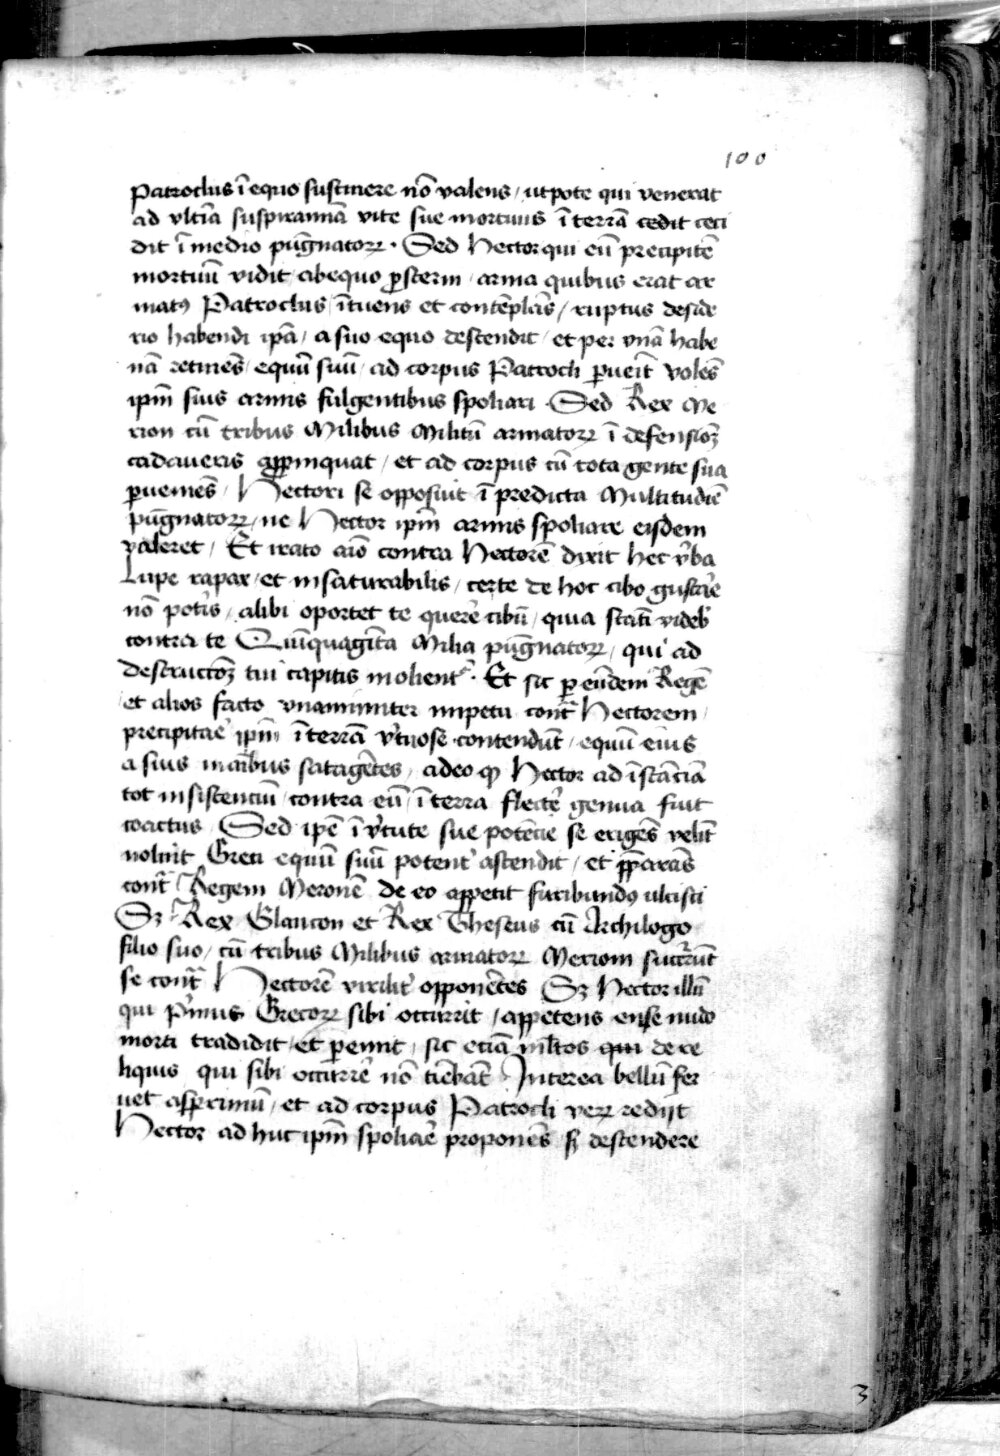 100
Patroclus ī equo sustinere nō valens / utpote qui venerat
ad vltīa suspiranūā vite sue mortuus ī terrā cedit ceci
dit ī medio pūgnatoꝝ · Sed Hector qui eū precipitē
mortuū vidit / ab equo ꝓsterni / arma quibus erat ar
matꝰ Patroclus / ītuens et contēplās / ruptus deside
rio habendi ipā / a suo equo descendit / et per vnā habe
nā retinēs / equū suū / ad corpus Patrocli ꝑueīt volēs
ipm̄ suis armis fulgentibus spoliari · Sed Rex Me
rion cū tribus Milibus Militū armatoꝝ ī defensioꝫ
cadaveris appinquat / et ad corpus cū tota gente sua
ꝑueniēs / Hectori se opposuit ī predicta Multitudīe
pūgnatoꝝ / ne Hector ipm̄ armis spoliare eisdem
valeret / Et irato aīo contra Hectorē dixit hec v̄ba
Lupe rapax / et insaturabilis / certe de hoc cibo gustāe
nō potīs / alibi oportet te querē cibū / quia statī videbꝭ
contra te Quīquagīta Milia pūgnatoꝝ / qui ad
destructōꝫ tui capitis molient᷑ · Et sic ꝑ eūdem Regē
et alios facto vnanimiter impetu cont̄ Hectorem /
precipitāe ipm̄ ī terrā v̄tuose contendūt / equū eius
a suis maībus satagētes / adeo ꝙ Hector ad īstācia
tot insistenciū / contra eū / ī terra flectē genua fuit
coactus / Sed ipē ī v̄tute sue potēcie se erigēs velīt
nolīnt Greci equū suū potent᷑ ascendit / et ꝓpāās
cont̄ Regem Meronē de eo appetit furibundꝰ ulcisci
Sꝫ Rex Glaucon et Rex Theseus cū Archilogo
filio suo / cū tribus Milibus armatoꝝ Merioni succ̄rūt
se cont̄ Hectorē virilit᷑ opponētes Sꝫ Hector illū
qui p̄mus Grecoꝝ sibi occurrit / appetens ense nudo
morti tradidit / et ꝑemit / sic eciā mltos qui de re
liquis qui sibi occurrē nō tīebāt / Interea bellū fer
uet aspērimū / et ad corpus Patrocli veꝝ redijt
Hector ad huc ipm̄ spoliāe proponēs / sꝫ descendere
3